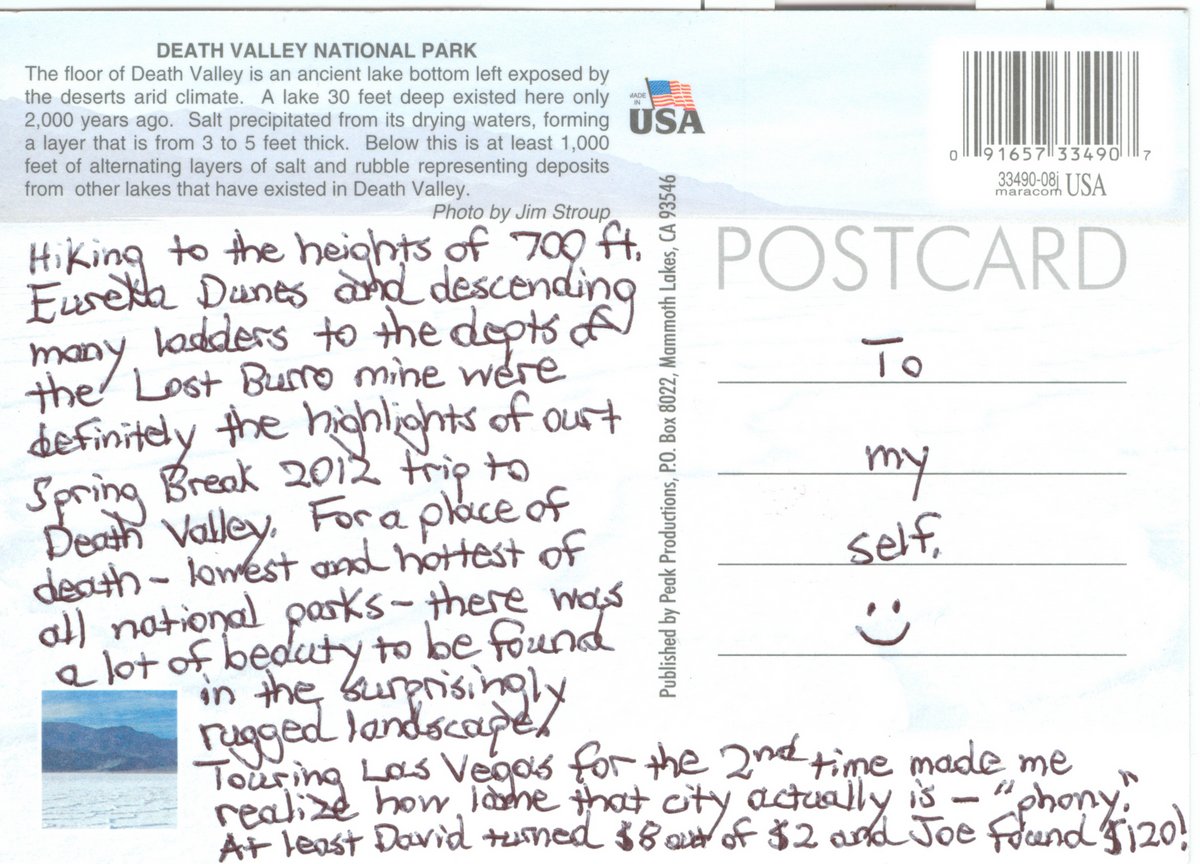 DEATH VALLEY NATIONAL PARK
The floor of Death Valley is an ancient lake bottom left exposed by
the deserts arid climate. A lake 30 feet deep existed here only
2,000 years ago. Salt precipitated from its drying waters, forming
a layer that is from 3 to 5 feet thick. Below this is at least 1,000
feet of alternating layers of salt and rubble representing deposits
from other lakes that have existed in Death Valley.
Photo by Jim Stroup
Hiking to the heights of 700 ft.
Eureka Dunes and descending
many ladders to the depts of
the Lost Burro mine were
definitely the highlights of ourt
Spring Break 2012 trip to
Death Valley. For a place of
death - lowest and hottest of
all national parks - there was
a lot of beauty to be found
in the surprisingly
rugged landscape!
Touring Las Vegas for the 2nd time made me
realize how lame that city actually is - "phony."
At least David turned $8 out of $2 and Joe found $120!
MADE
IN
USA
Published by Peak Productions, P.O. Box 8022, Mammoth Lakes, CA 93546
0 91657 33490 7
33490-08j USA
maracom
POSTCARD
To
my
self.